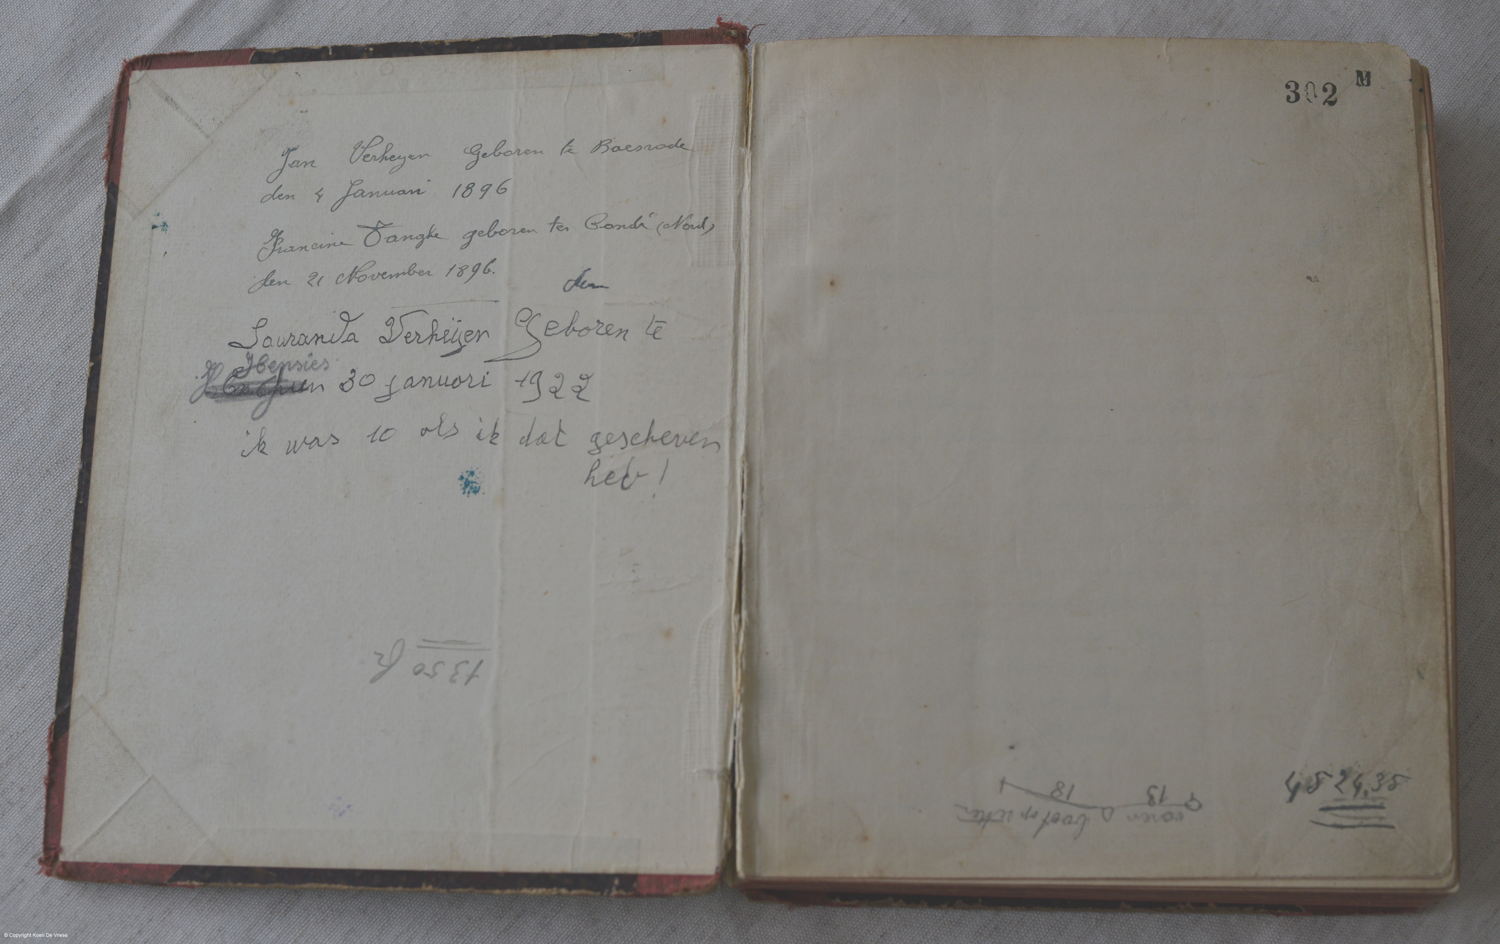 Jan Verheyen Geboren te Baesrode
den 4 Januari 1896
Francine geboren ter Condé (Nord)
den 21 November 1896.
den
Verheÿen Geboren te
Hensies
30 januari 1922
ik was 10 als ik dat gescheven
heb!
1350 fr
302 M
13 18
4524,35
© Copyright Koen De Vriese